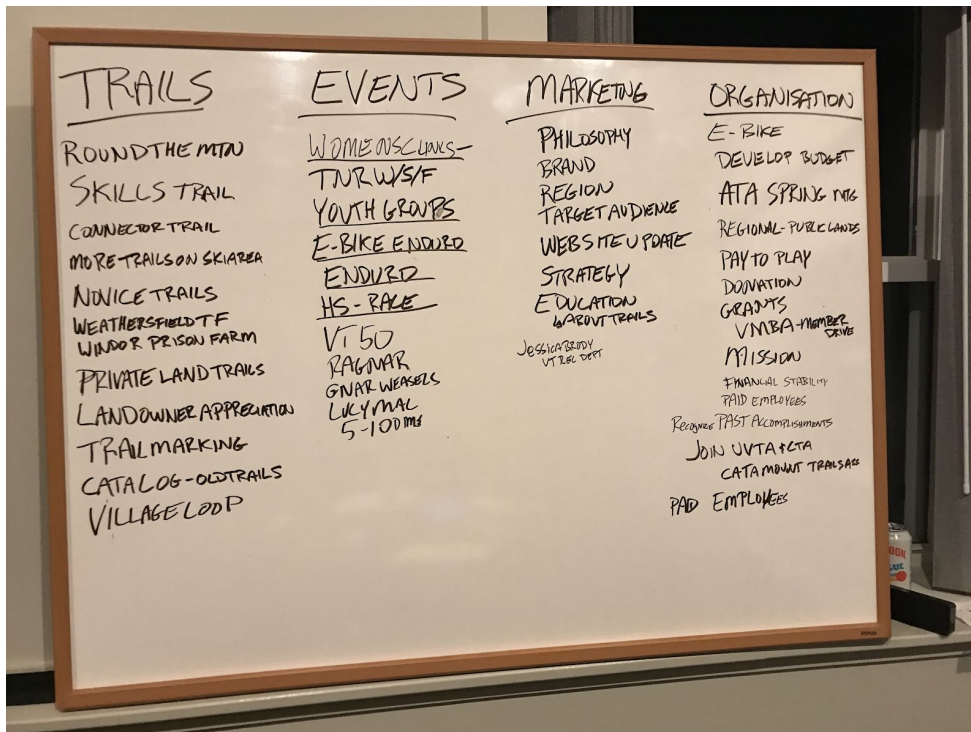 TRAILS
ROUND THE MTN
SKILLS TRAIL
CONNECTOR TRAIL
MORE TRAILS ON SKI AREA
NOVICE TRAILS
WEATHERSFIELD TF
WINDOR PRISON FARM
PRIVATE LAND TRAILS
LANDOWNER APPRECIATION
TRAIL MARKING
CATALOG - OLD TRAILS
VILLAGE LOOP
EVENTS
TNR W/S/F
YOUTH GROUPS
E-BIKE ENDURO
ENDURO
HS - RACE
VT 50
RAGNAR
GNAR WEASELS
LUCY MAC
5-100 
MARKETNG
PHILOSOPHY
BRAND
REGION
TARGET AUDIENCE
WEBSITE UPDATE
STRATEGY
EDUCATION
↳ ABOUT TRAILS
JESSICA BRODY
VT REC DEPT
ORGANISATION
E-BIKE
DEVELOP BUDGET
ATA SPRING MTG
REGIONAL - PUBLIC LANDS
PAY TO PLAY
DONATION
GRANTS
VMBA - MEMBER
DRIVE
MISSION
FINANCIAL STABILITY
PAID EMPLOYEES
RECOGNIZE PAST ACCOMPLISHMENTS
JOIN UVTA + CTA
CATAMOUNT TRAILS ASS
PAID EMPLOYEES